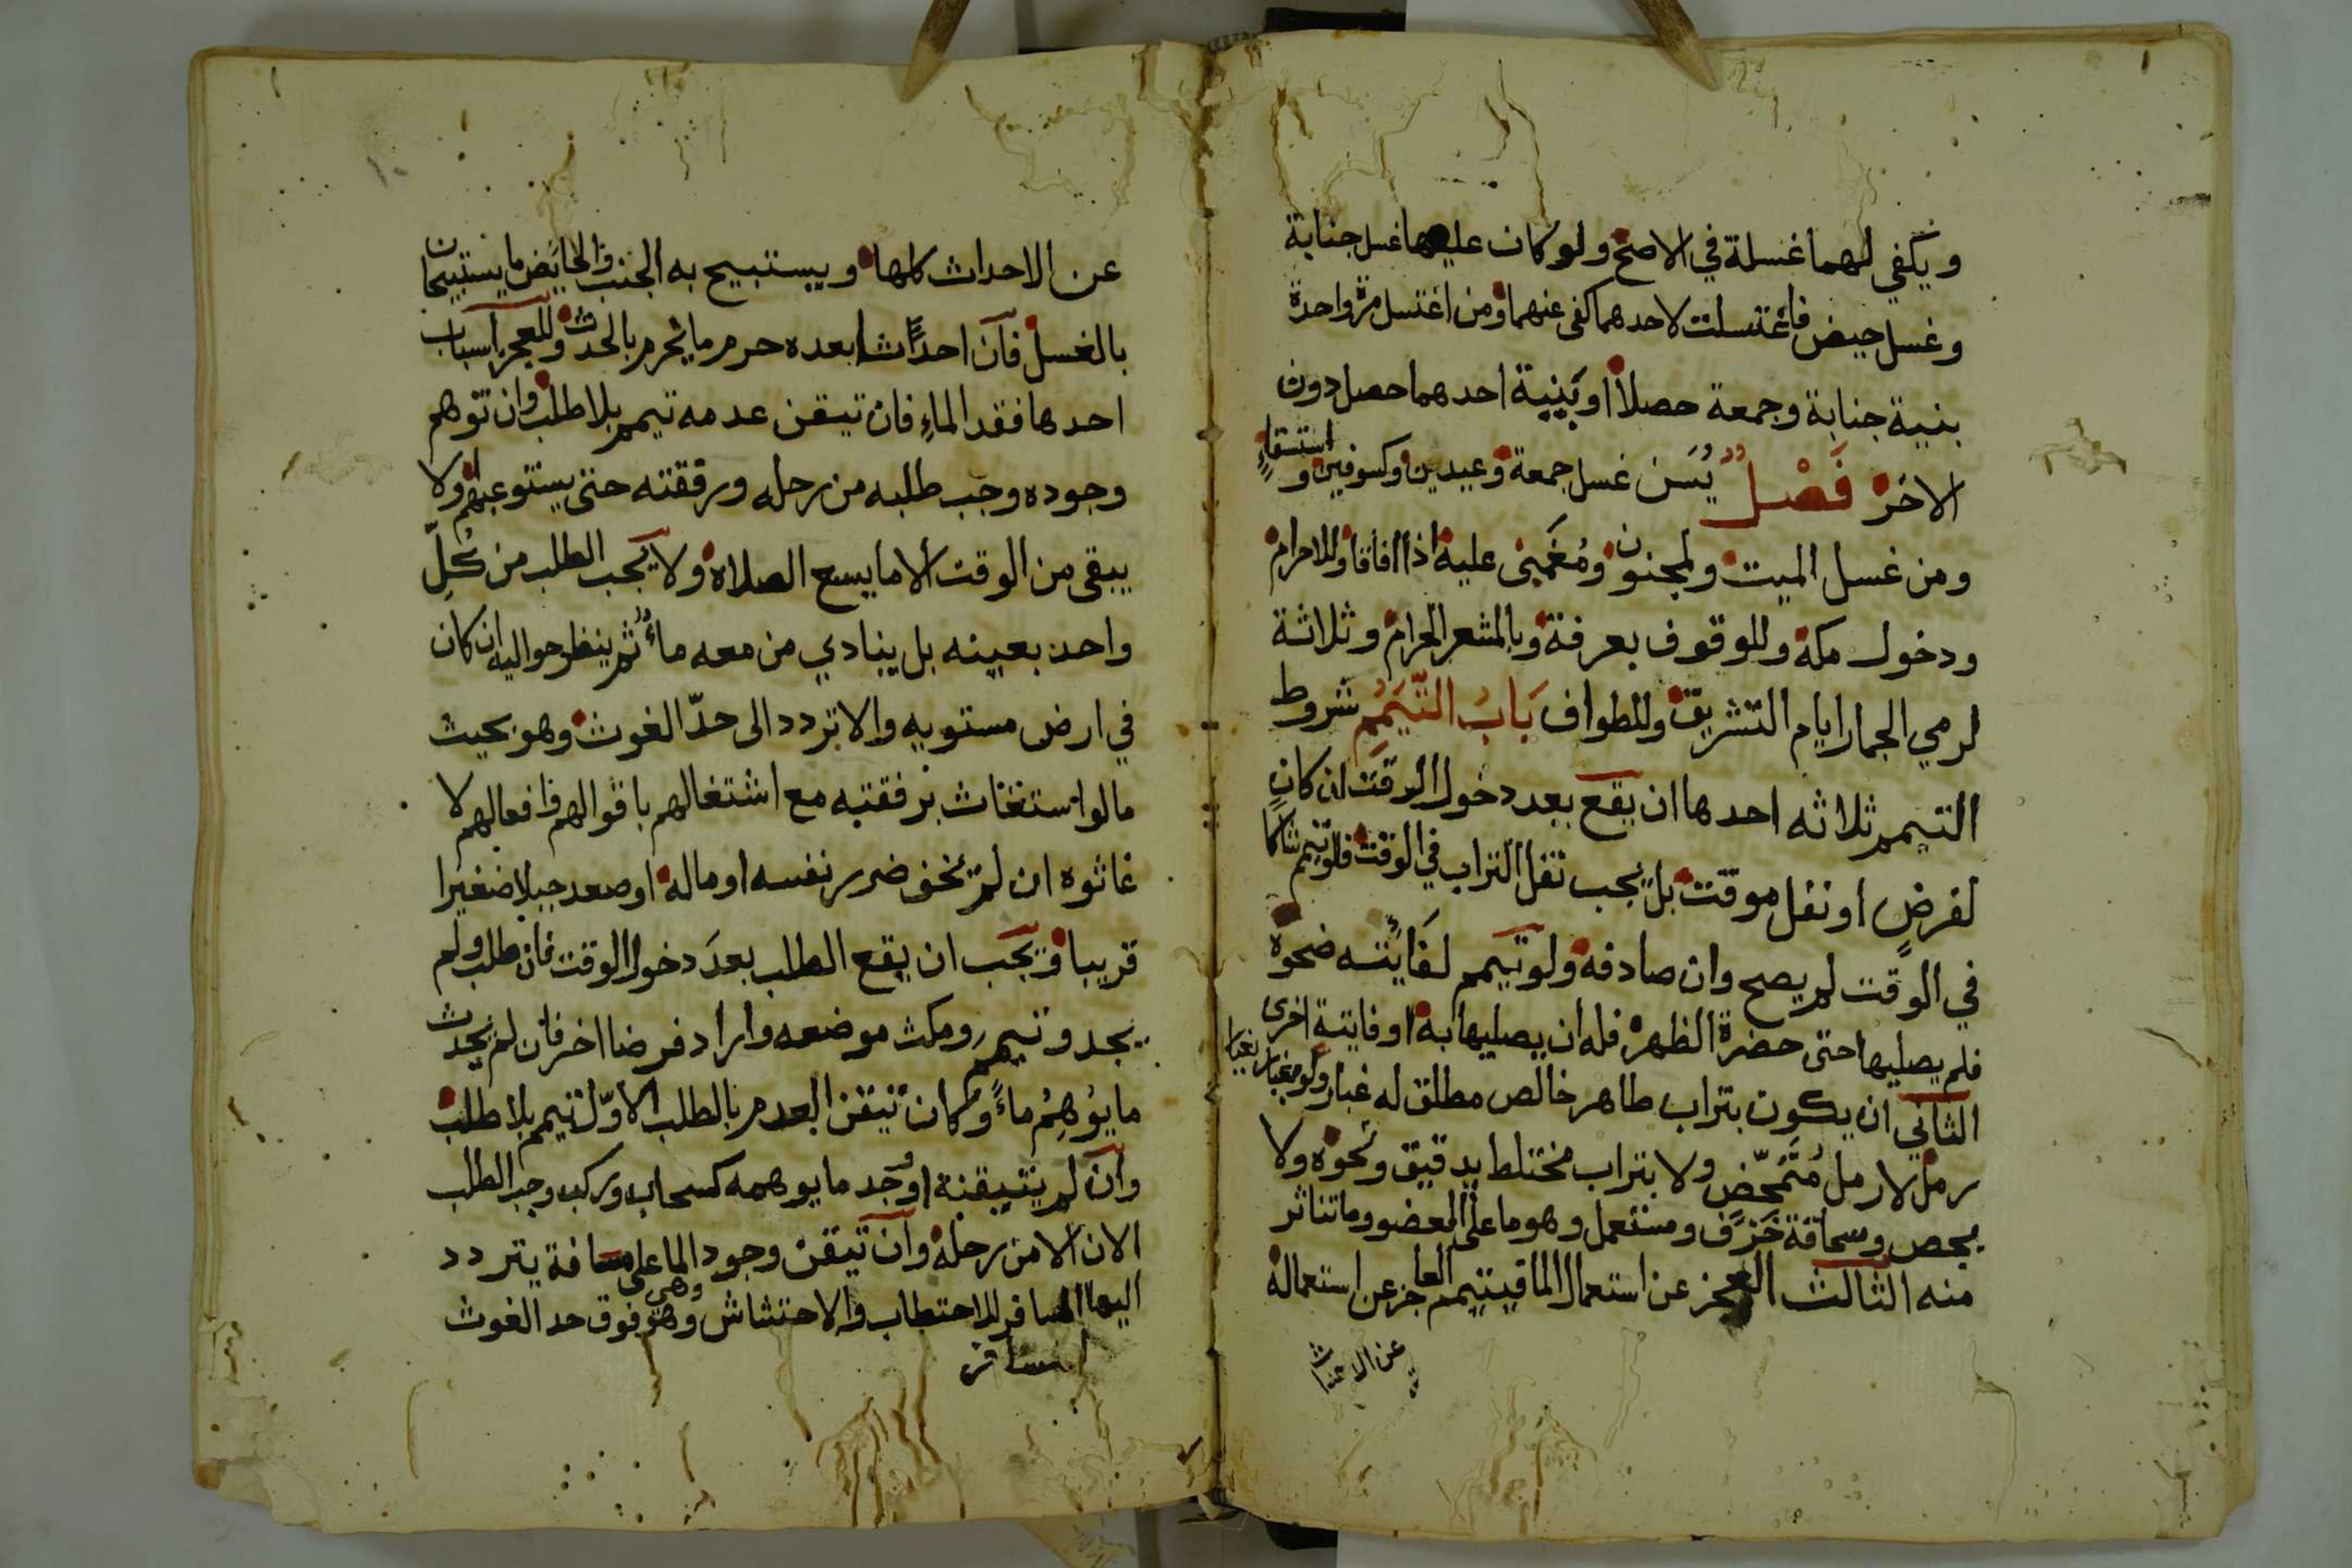 ويكفي لهما غسلة في الاصح ولو كان عليها غسل جنابة
وغسل حيض فاغتسلت لاحدهما كفى عنهما ومن اغتسل مرة واحدة
بنية جنابة وجمعة حصلا او بنية احدهما حصل دون
الاخر فَصْلٌ يُسَن غسل جمعة وعيدين وكسوفين و استسقاءٍ
ومن غسل الميت ولمجنون ومُغمىً عليه اذا افاقا وللاحرام
ودخول مكة وللوقوف بعرفة وبالمشعر الحرام وثلاثة
لرمي الجمار ايام التشريق وللطواف بَابُ التَّيَمُّمِ شروط
التيمم ثلاثه احدها ان يقع بعد دخول الوقت ان كان
لفرضٍ او نفل موقت بل يجب نقل التراب في الوقت فلو تيمم شاكا
في الوقت لم يصح وان صادفه ولو تيمم لفايته ضحوة
فلم يصليها حتى حضرة الظهر فله ان يصليها به او فايتة اخرى
الثاني ان يكون بتراب طاهر خالص مطلق له غبار ولو بغبار
رمل لا رمل مُتَمَحِّضٍ ولا بتراب مختلط بدقيق ونحوه ولا
بجص وسحاقة خَزَف ومستعمل وهو ما على العضو وما تناثر
منه الثالث العجز عن استعمال الما فيتيمم العاجز عن استعماله
عن الاحداث
عن الاحداث كلها ويستبيح به الجنب والحايض ما يستبيحان
بالغسل فان احدثا بعده حرم ما يحرم بالحدث وللعجز اسباب
احدها فقد الماءِ فان تيقن عدمه تيمم بلا طلب وان توهم
وجوده وجب طلبه من رحله ورفقته حتى يستوعبهم ولا
يبقى من الوقت الا ما يسع الصلاة ولا يجب الطلب من كُلِّ
واحد بعينه بل ينادي من معه ماءٌ ثم ينظر حواليه ان كان
في ارض مستويه والا تردد الى حدّ الغوث وهو بحيث
ما لو استغاث برفقته مع اشتغالهم باقوالهم وافعالهم لا
غاثوه ان لم يخف ضرر نفسه او ماله او صعد جبلا صغيرا
قريبا ويجب ان يقع الطلب بعدَ دخول الوقت فان طلب ولم
يجد وتيمم ومكث موضعه واراد فرضا اخر فان لم يحدث
ما يُوهِمُ ماءً وكان تيقن العدم بالطلب الاوّل تيمم بلا طلب
وان لم يتيقنه او وُجد ما يوهمه كسحاب وركب وجب الطلب
الان الا من رحله وان تيقن وجود الما على مسافة يتردد
اليها المسافر للاحتطاب والاحتشاش وهي وهو فوق حد الغوث
المسافر